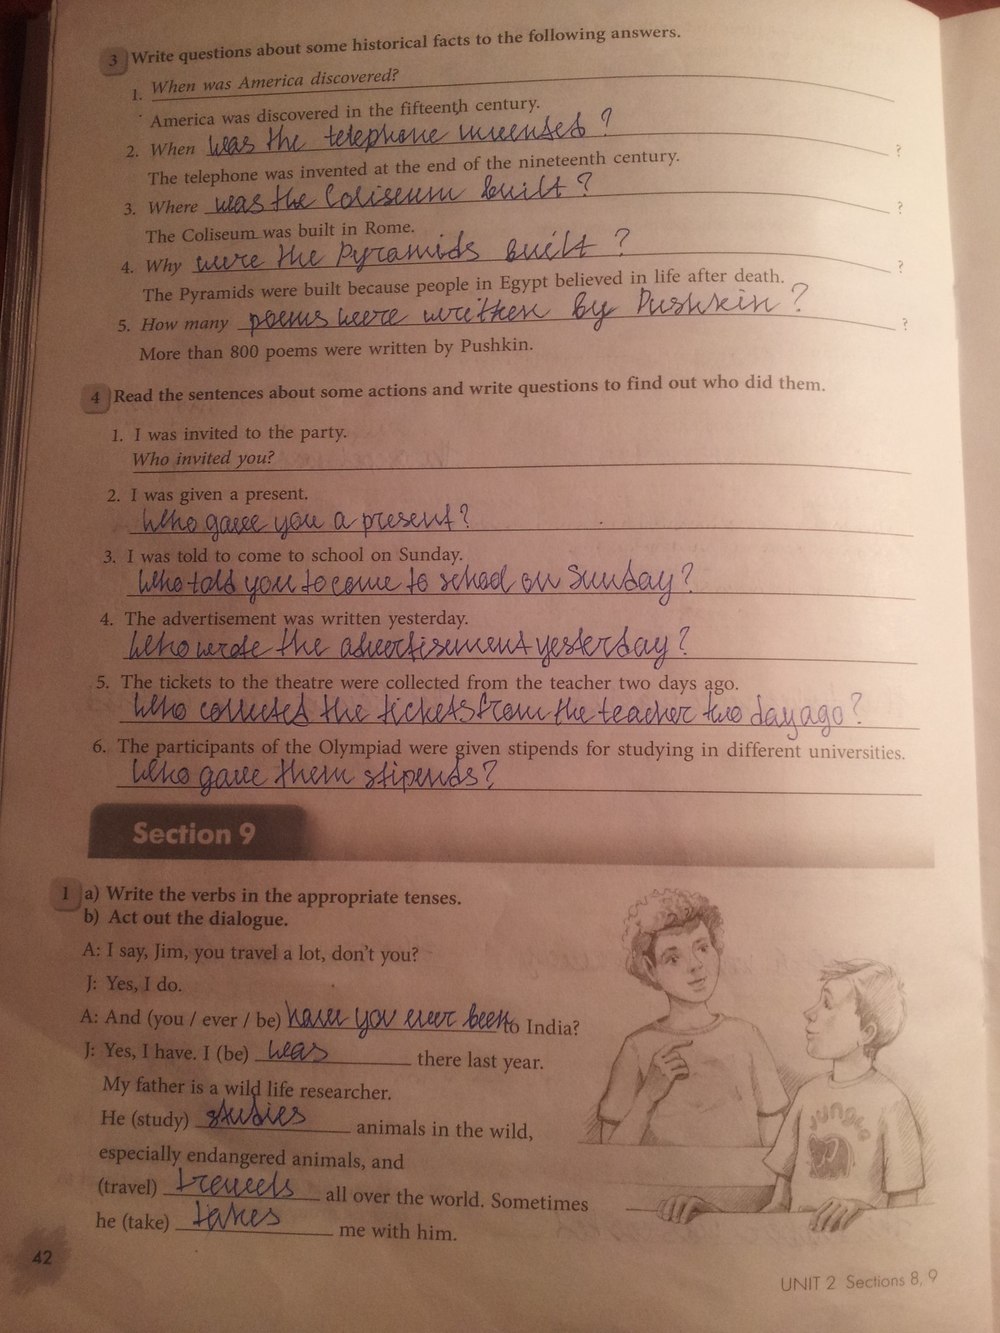 3 Write questions about some historical facts to the following answers.
1. When was America discovered?
America was discovered in the fifteenth century.
2. When was the telephone invented? ?
The telephone was invented at the end of the nineteenth century.
3. Where was the Coliseum built? ?
The Coliseum was built in Rome.
4. Why were the Pyramids built? ?
The Pyramids were built because people in Egypt believed in life after death.
5. How many poems were written by Pushkin? ?
More than 800 poems were written by Pushkin.
4 Read the sentences about some actions and write questions to find out who did them.
1. I was invited to the party.
Who invited you?
2. I was given a present.
Who gave you a present?
3. I was told to come to school on Sunday.
Who told you to come to school on Sunday?
4. The advertisement was written yesterday.
Who wrote the advertisement yesterday?
5. The tickets to the theatre were collected from the teacher two days ago.
Who collected the tickets from the teacher two day ago?
6. The participants of the Olympiad were given stipends for studying in different universities.
Who gave them stipends?
Section 9
1 a) Write the verbs in the appropriate tenses.
b) Act out the dialogue.
A: I say, Jim, you travel a lot, don't you?
J: Yes, I do.
A: And (you / ever / be) have you ever been to India?
J: Yes, I have. I (be) was there last year.
My father is a wild life researcher.
He (study) studies animals in the wild,
especially endangered animals, and
(travel) travels all over the world. Sometimes
he (take) takes me with him.
Jungle
42
UNIT 2 Sections 8, 9